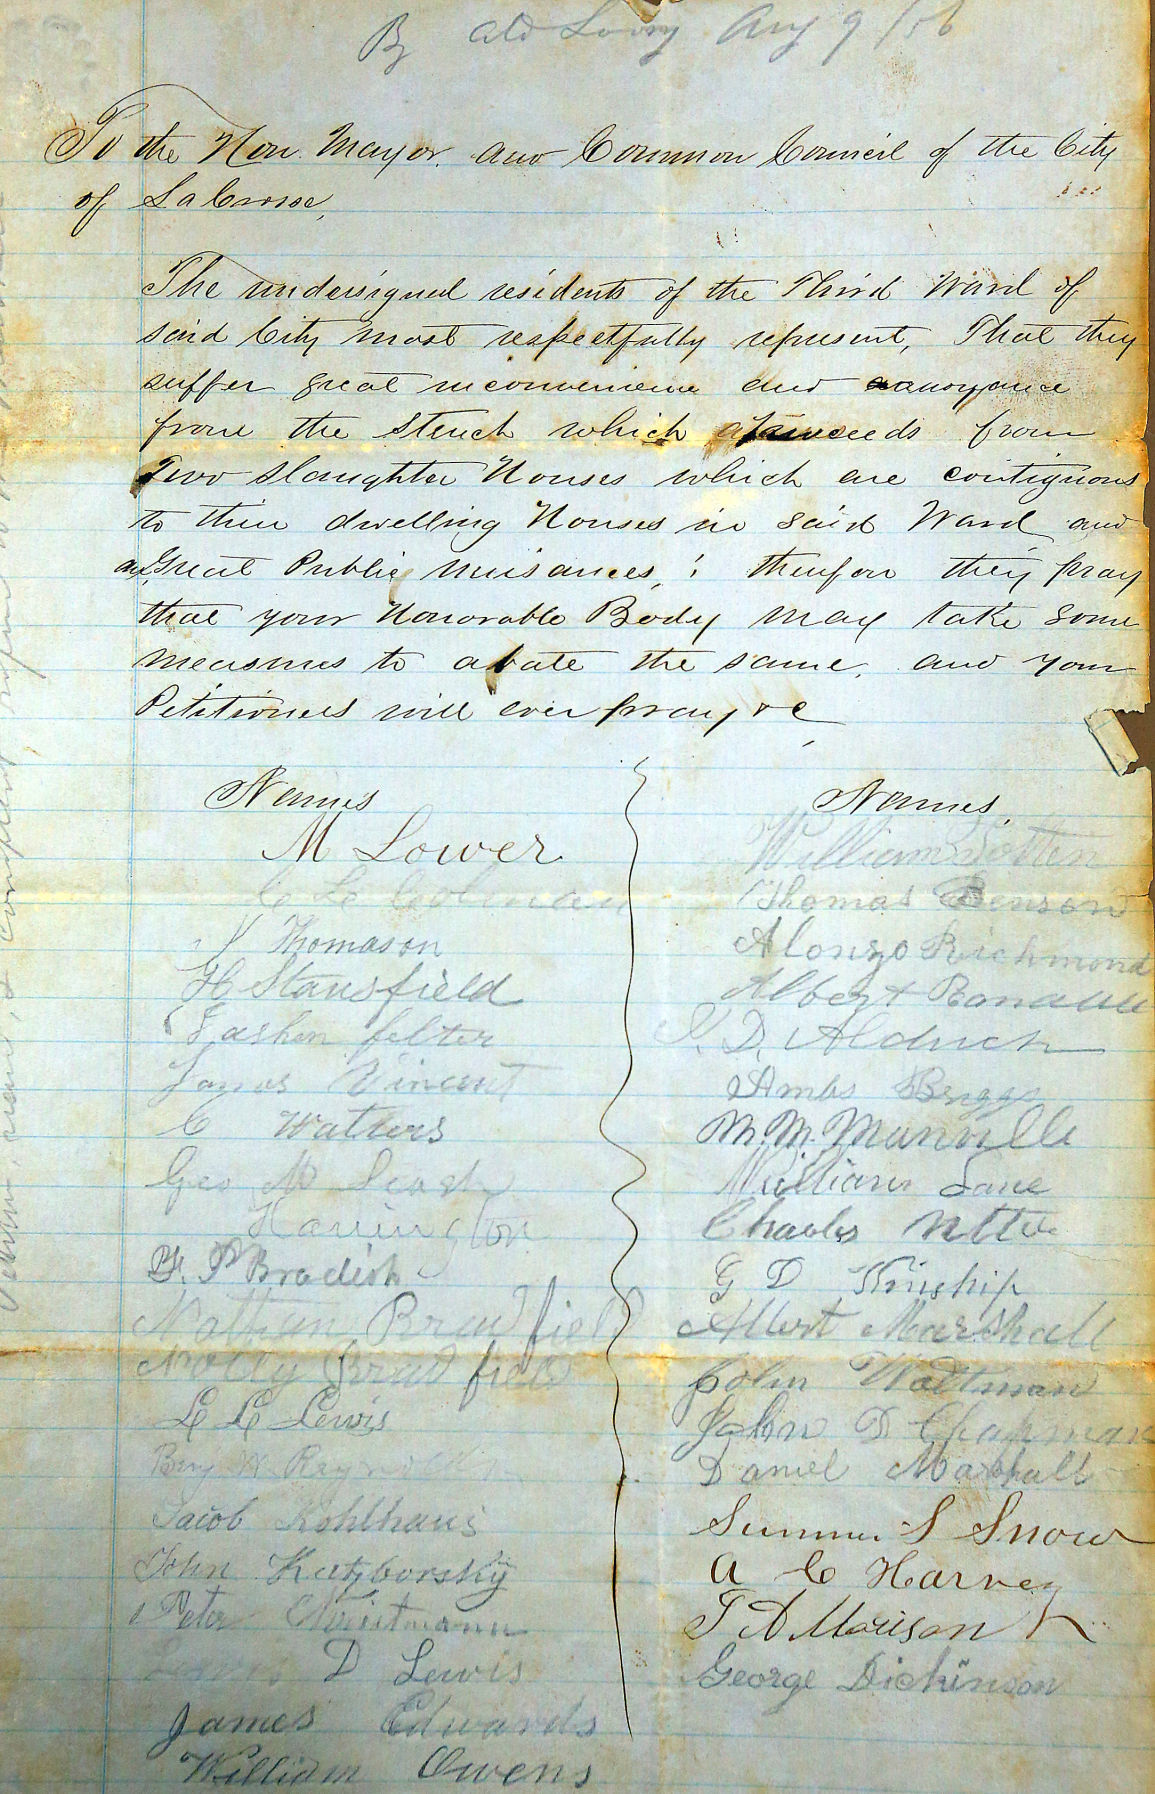 By Ald Aug 9 /56
To the Hon. Mayor. and Common Council of the City
of La Crosse,
The undersigned residents of the Third Ward of
said City most respectfully represent, That they
suffer great inconvenience and annoyance
from the stench which proceeds from
Two Slaughter Houses which are contiguous
to their dwelling Houses in said Ward and
are Great Public nuisances, ; therefore they pray
that your Honorable Body may take some
measures to abate the same, and your
Petitioners will ever pray &c
Names
M Lower
C L Colman
Thomason
H Stansfield
felter
James Vincent
C Watters
Geo M
Harrington
Bradish
Nathan Bradfield
Bradfield
L L Lewis
Benj W
Jacob Kohlhaus
John Katzborsky
Peter
D Lewis
James Edwards
William Owens
Names.
William Totten
Thomas Benson
Alonzo Richmond
Albert
D. Aldrich
Ambs Briggs
M. M. Manville
William Lane
Charles
G D Winship
Albert Marshall
John Waltman
John D Chapman
Daniel Marshall
Sumner S Snow
A C Harvey
T A Morison
George Dickinson